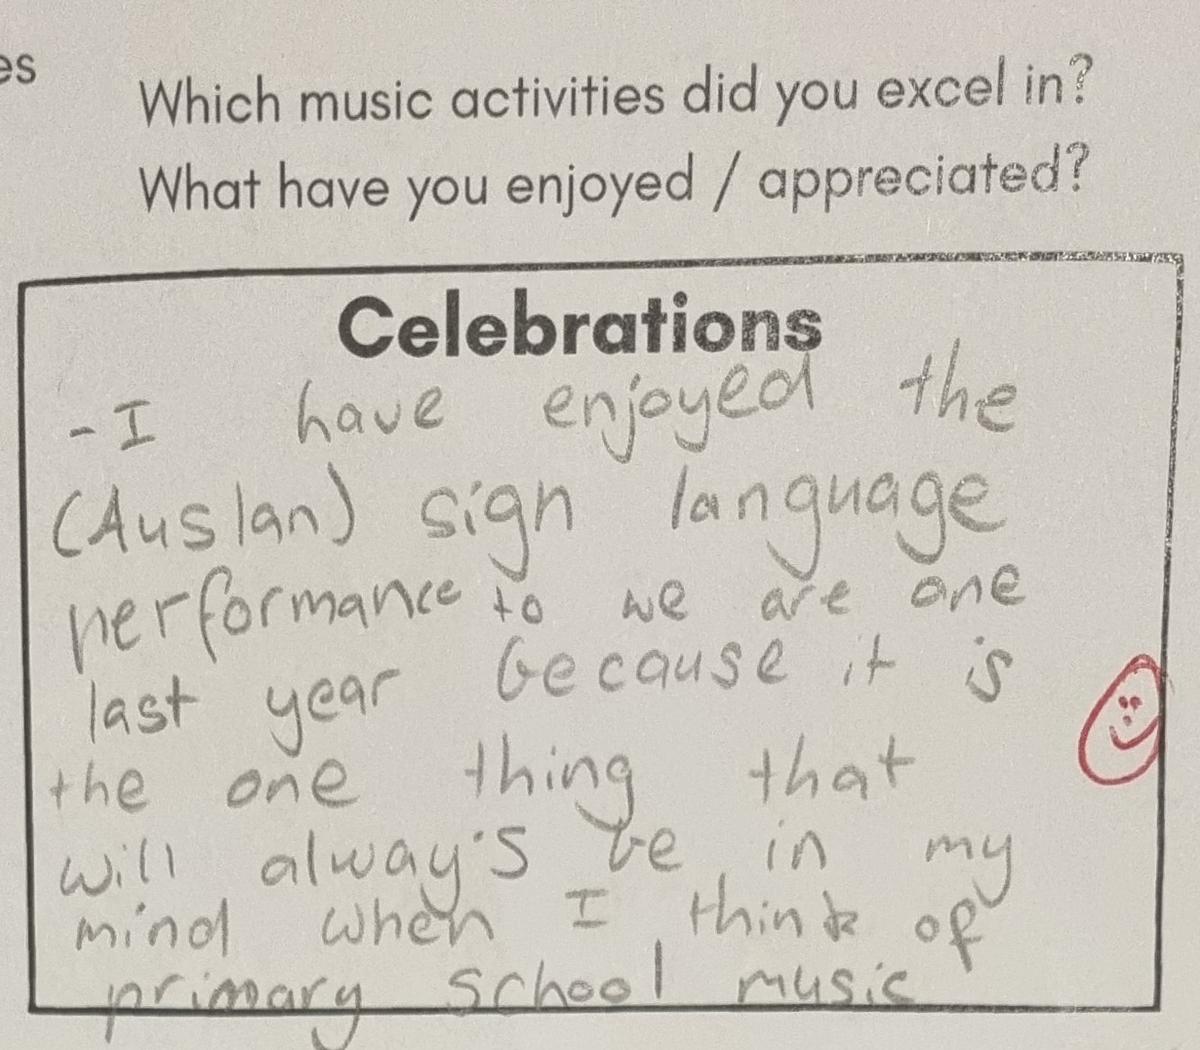 es
Which music activities did you excel in?
What have you enjoyed / appreciated?
Celebrations
- I have enjoyed the
(Auslan) sign language
performance to we are one
last year because it is
the one thing that
will alway's be in my
mind when I think of
primary school music